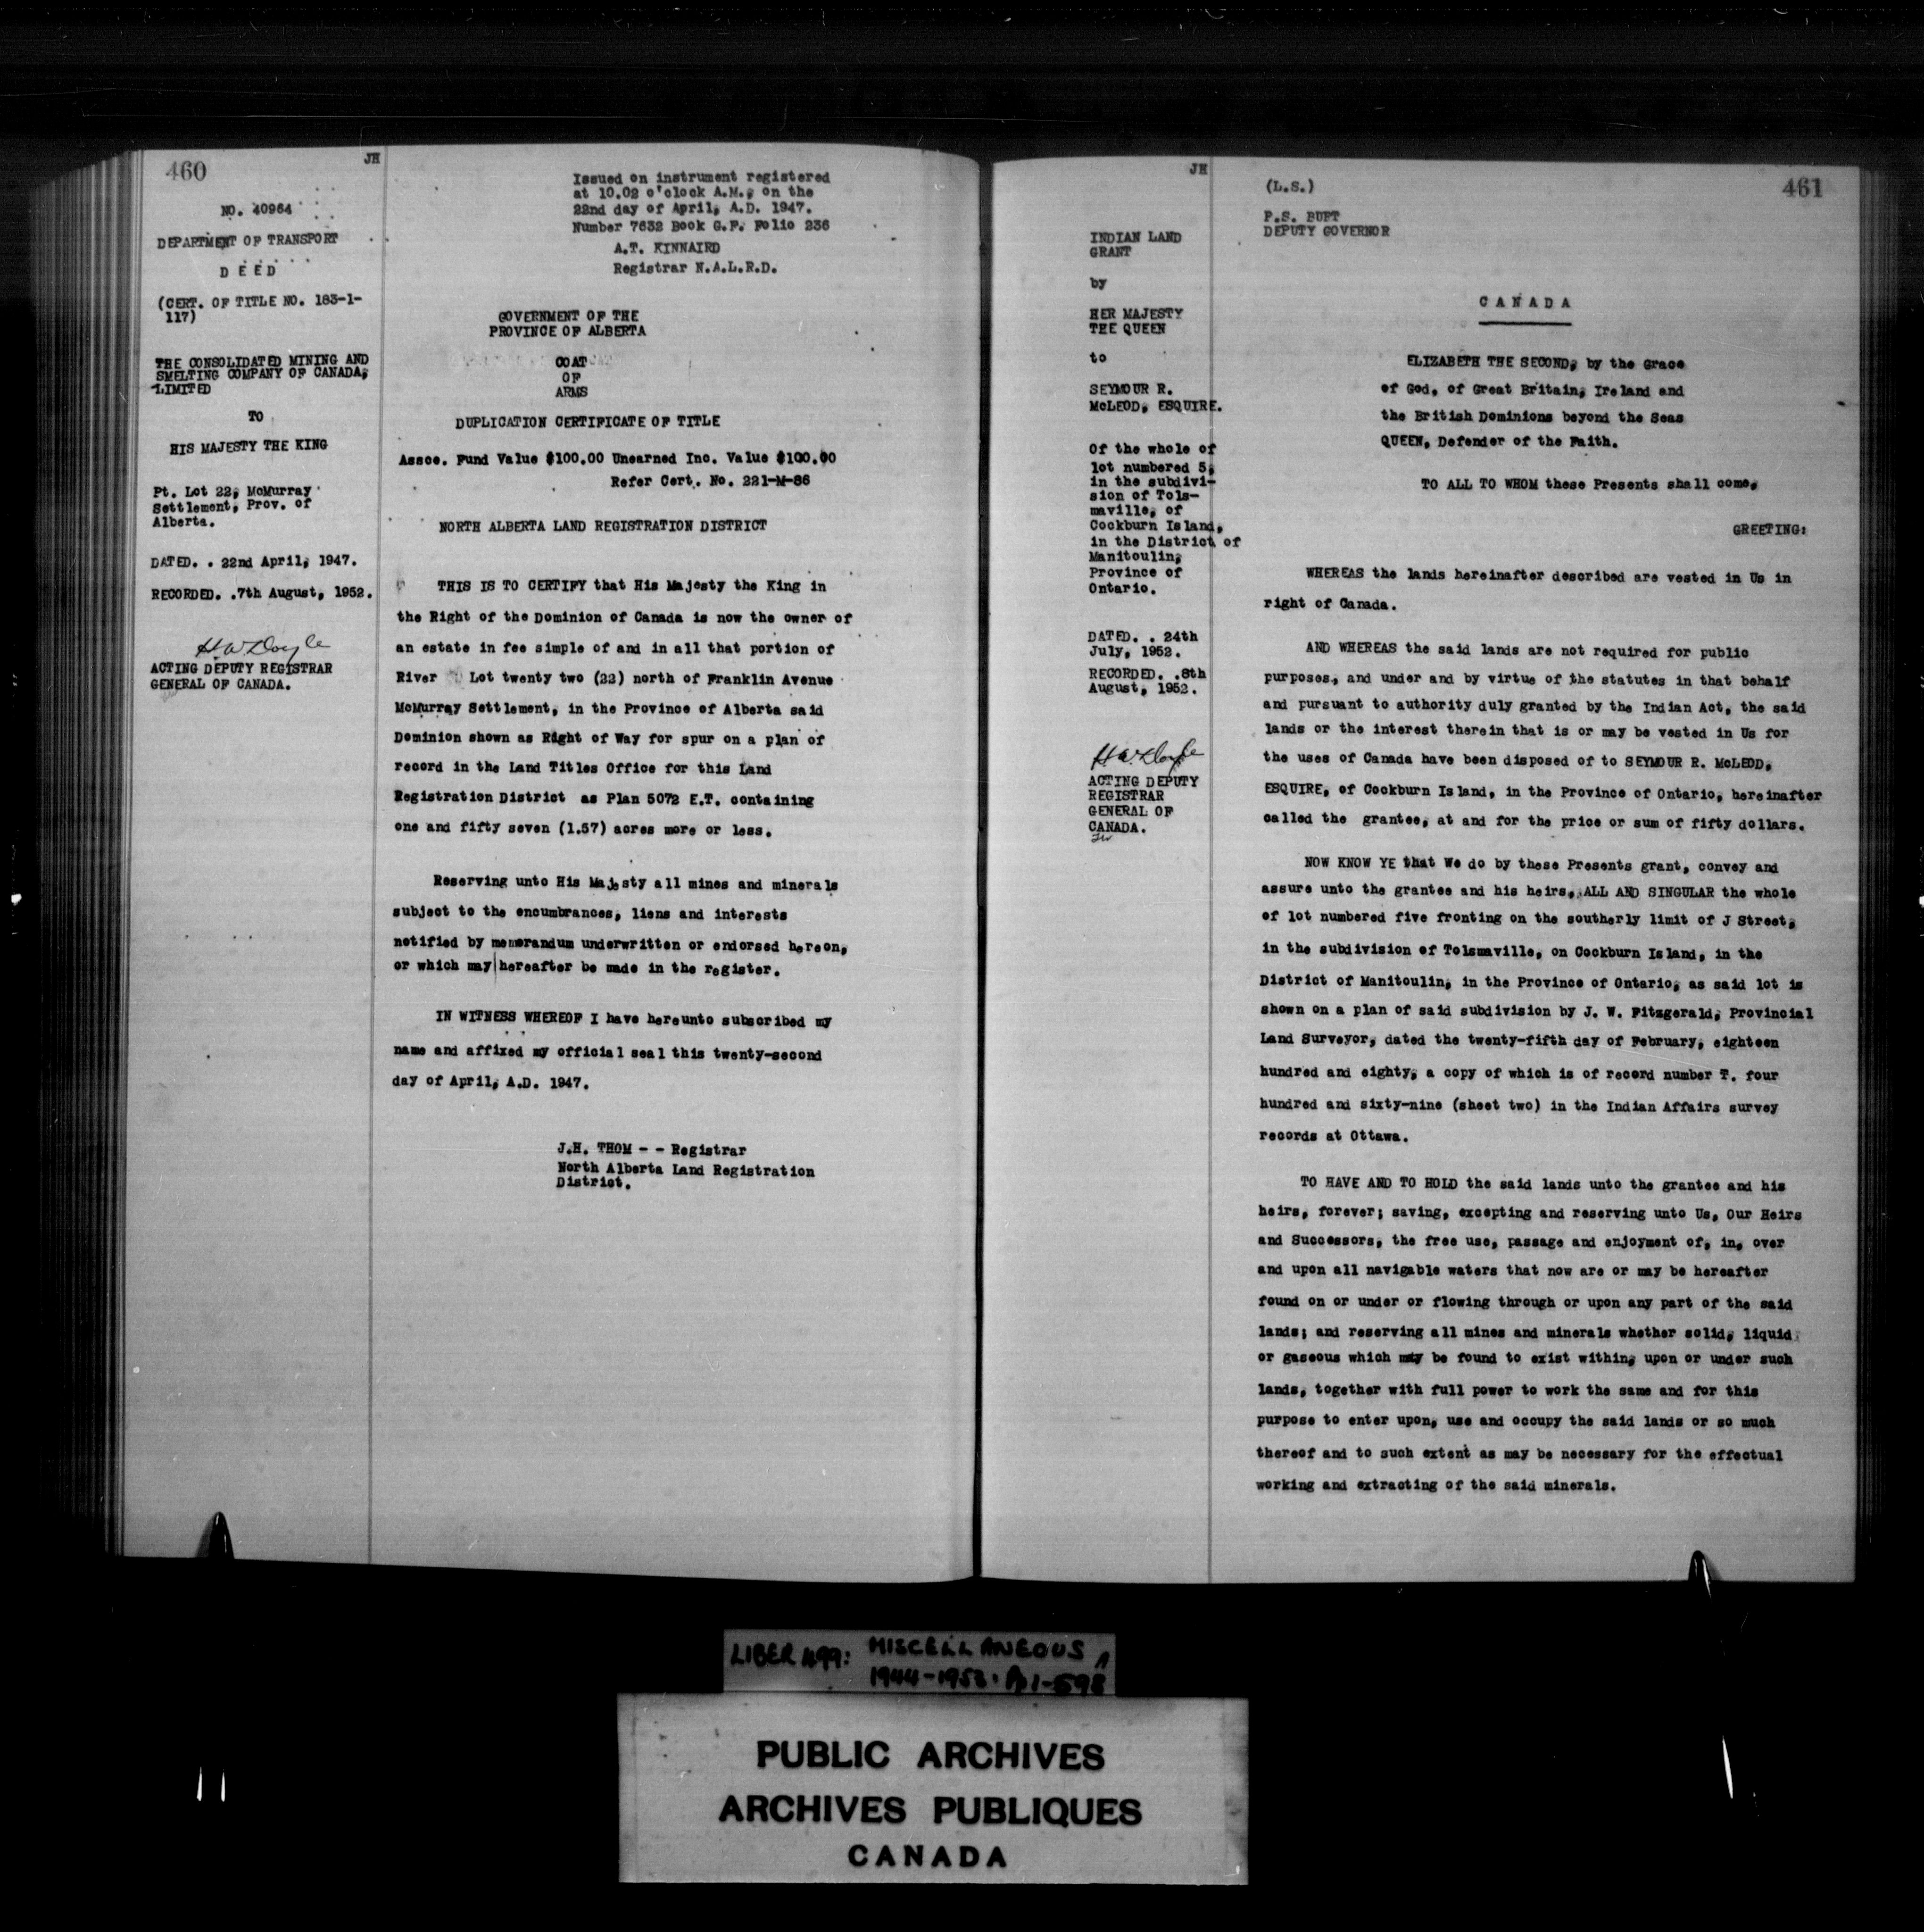 460
JH
NO. 40964
DEPARTMENT OF TRANSPORT
D E E D
(CERT. OF TITLE NO. 183-1-
117)
THE CONSOLIDATED MINING AND
SMELTING COMPANY OF CANADA,
LIMITED
TO
HIS MAJESTY THE KING
Pt. Lot 22, McMurray
Settlement, Prov. of
Alberta.
DATED. . 22nd April, 1947.
RECORDED. .7th August, 1952.
H W Doyle
ACTING DEPUTY REGISTRAR
GENERAL OF CANADA.
Issued on instrument registered
at 10.02 o'clock A.M., on the
22nd day of April, A.D. 1947.
Number 7632 Book G.F. Folio 236
A.T. KINNAIRD
Registrar N.A.L.R.D.
GOVERNMENT OF THE
PROVINCE OF ALBERTA
COAT
OF
ARMS
DUPLICATION CERTIFICATE OF TITLE
Assce. Fund Value $100.00 Unearned Inc. Value $100.00
Refer Cert. No. 221-M-86
NORTH ALBERTA LAND REGISTRATION DISTRICT
THIS IS TO CERTIFY that His Majesty the King in
the Right of the Dominion of Canada is now the owner of
an estate in fee simple of and in all that portion of
River Lot twenty two (22) north of Franklin Avenue
McMurray Settlement, in the Province of Alberta said
Dominion shown as Right of Way for spur on a plan of
record in the Land Titles Office for this Land
Registration District as Plan 5072 E.T. containing
one and fifty seven (1.57) acres more or less.
Reserving unto His Majesty all mines and minerals
subject to the encumbrances, liens and interests
notified by memorandum underwritten or endorsed hereon,
or which may hereafter be made in the register.
IN WITNESS WHEREOF I have hereunto subscribed my
name and affixed my official seal this twenty-second
day of April, A.D. 1947.
J.H. THOM - - Registrar
North Alberta Land Registration
District.
JH
461
INDIAN LAND
GRANT
by
HER MAJESTY
THE QUEEN
to
SEYMOUR R.
McLEOD, ESQUIRE.
Of the whole of
lot numbered 5,
in the subdivi-
sion of Tols-
maville, of
Cockburn Island,
in the District of
Manitoulin,
Province of
Ontario.
DATED. . 24th
July, 1952.
RECORDED. .8th
August, 1952.
H W Doyle
ACTING DEPUTY
REGISTRAR
GENERAL OF
CANADA.
(L.S.)
P.S. BURT
DEPUTY GOVERNOR
C A N A D A
ELIZABETH THE SECOND, by the Grace
of God, of Great Britain, Ireland and
the British Dominions beyond the Seas
QUEEN, Defender of the Faith.
TO ALL TO WHOM these Presents shall come,
GREETING:
WHEREAS the lands hereinafter described are vested in Us in
right of Canada.
AND WHEREAS the said lands are not required for public
purposes, and under and by virtue of the statutes in that behalf
and pursuant to authority duly granted by the Indian Act, the said
lands or the interest therein that is or may be vested in Us for
the uses of Canada have been disposed of to SEYMOUR R. McLEOD,
ESQUIRE, of Cockburn Island, in the Province of Ontario, hereinafter
called the grantee, at and for the price or sum of fifty dollars.
NOW KNOW YE that We do by these Presents grant, convey and
assure unto the grantee and his heirs, ALL AND SINGULAR the whole
of lot numbered five fronting on the southerly limit of J Street,
in the subdivision of Tolsmaville, on Cockburn Island, in the
District of Manitoulin, in the Province of Ontario, as said lot is
shown on a plan of said subdivision by J. W. Fitzgerald, Provincial
Land Surveyor, dated the twenty-fifth day of February, eighteen
hundred and eighty, a copy of which is of record number T. four
hundred and sixty-nine (sheet two) in the Indian Affairs survey
records at Ottawa.
TO HAVE AND TO HOLD the said lands unto the grantee and his
heirs, forever; saving, excepting and reserving unto Us, Our Heirs
and Successors, the free use, passage and enjoyment of, in, over
and upon all navigable waters that now are or may be hereafter
found on or under or flowing through or upon any part of the said
lands; and reserving all mines and minerals whether solid, liquid
or gaseous which may be found to exist within, upon or under such
lands, together with full power to work the same and for this
purpose to enter upon, use and occupy the said lands or so much
thereof and to such extent as may be necessary for the effectual
working and extracting of the said minerals.
LIBER 499: MISCELLANEOUS
1944-1953. Pp 1-598
PUBLIC ARCHIVES
ARCHIVES PUBLIQUES
CANADA